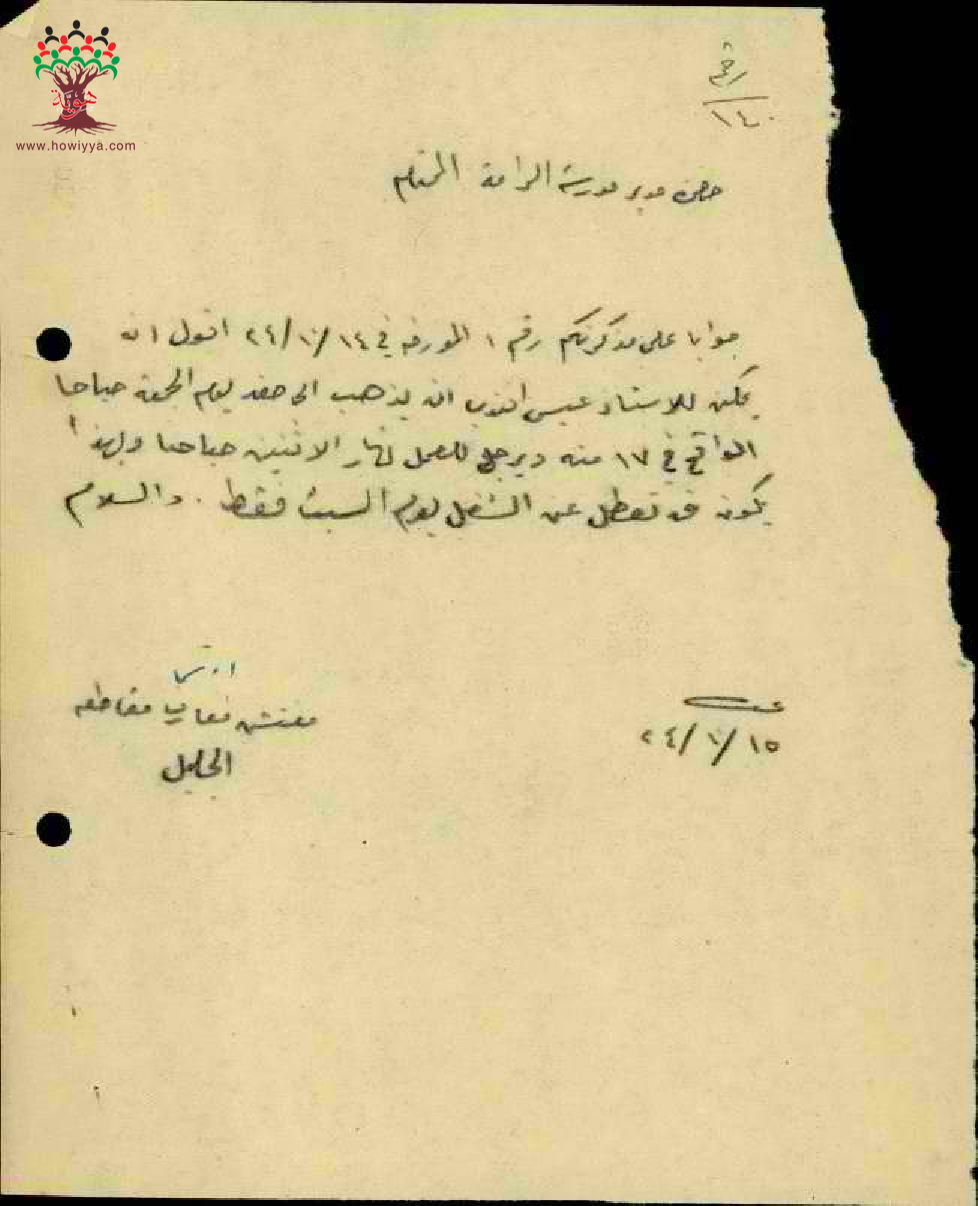 هوية
www.howiyya.com
رقم
١٤٠
حضرة مدير مدرسة الرامة المحترم
جوابا على مذكرتكم رقم ١ المورخه في ١٤/١/٢٤ اقول انه
يمكن للاستاذ عيسى ان يذهب الى صفد يوم الجمعة صباحا
الواقع في ١٧ منه ويرجع للعمل نهار الاثنين صباحا وبهذا
يكون قد تعطل عن الشغل يوم السبت فقط . والسلام
مفتش معارف مقاطعه
الجليل
١٥/١/٢٤